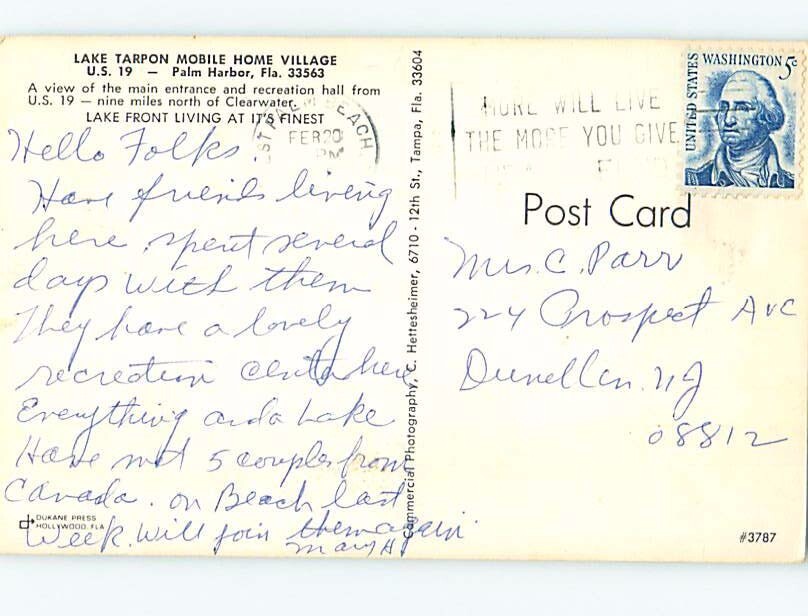 LAKE TARPON MOBILE HOME VILLAGE
U.S. 19 — Palm Harbor, Fla. 33563
A view of the main entrance and recreation hall from
U.S. 19 — nine miles north of Clearwater.
LAKE FRONT LIVING AT IT'S FINEST
Hello Folks.
Have friends living
here, spent several
days with them
They have a lovely
recreation center here
Everything and a Lake
Have met 5 couples from
Canada. on Beach last
Week. Will join them again
Mary H
DUKANE PRESS
HOLLYWOOD, FLA
Commercial Photography, C. Hettesheimer, 6710 - 12th St., Tampa, Fla. 33604
BEACH
FEB 20
PM
MORE WILL LIVE
THE MORE YOU GIVE
UNITED STATES
WASHINGTON 5c
Post Card
Mrs. C. Parr
224 Prospect Ave
Dunellen. NJ
08812
#3787